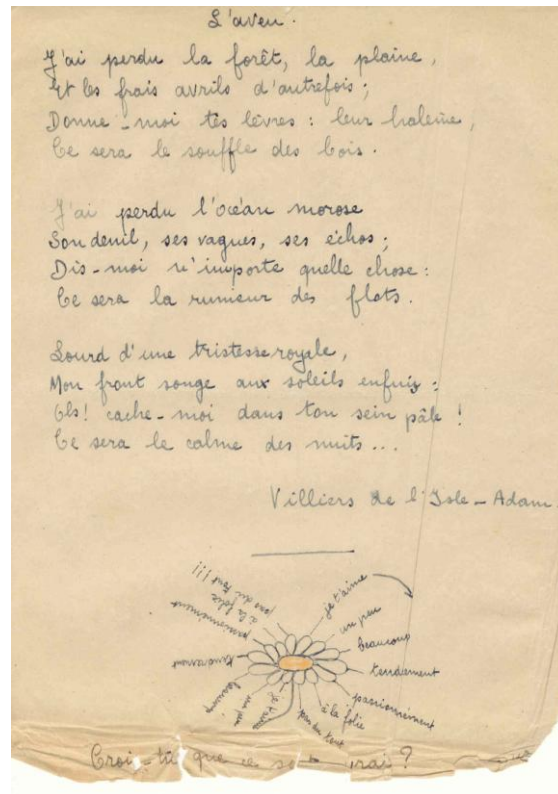 L'aveu.
J'ai perdu la forêt, la plaine,
Et les frais avrils d'autrefois ;
Donne-moi tes lèvres : leur haleine,
Ce sera le souffle des bois.
J'ai perdu l'océan morose
Son deuil, ses vagues, ses échos ;
Dis-moi n'importe quelle chose :
Ce sera la rumeur des flots.
Lourd d'une tristesse royale,
Mon front songe aux soleils enfuis :
Oh! cache-moi dans ton sein pâle !
Ce sera le calme des nuits...
Villiers de l'Isle-Adam
je t'aime
un peu
beaucoup
tendrement
passionnément
à la folie
pas du tout
je t'aime
un peu
beaucoup
tendrement
passionnément
à la folie
pas du tout !!!
Crois-tu que ce vrai ?